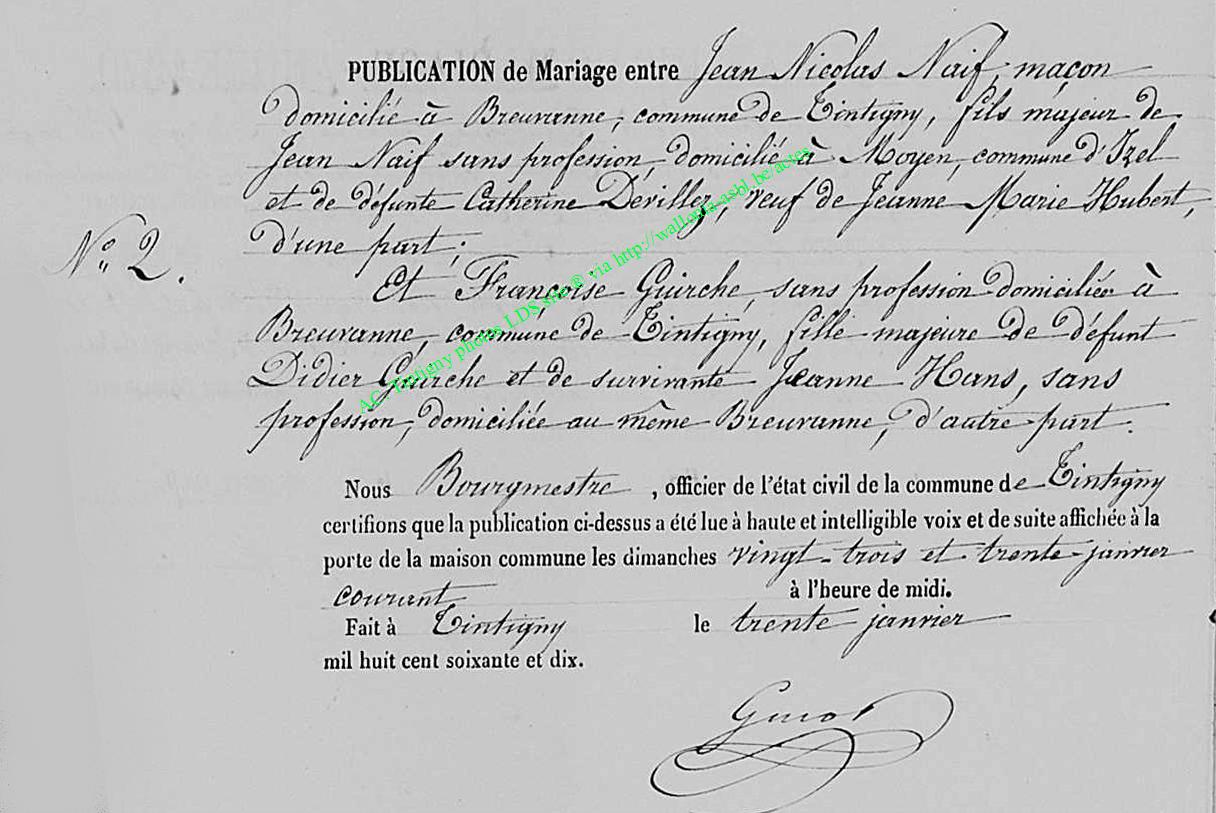 PUBLICATION de Mariage entre Jean Nicolas Naif, maçon
domicilié à Breuvanne, commune de Tintigny, fils majeur de
Jean Naif sans profession, domicilié à Moyen, commune d'Izel
et de défunte Catherine Devillez, veuf de Jeanne Marie Hubert,
d'une part;
N° 2.
Et Françoise Guirche, sans profession domiciliée à
Breuvanne, commune de Tintigny, fille majeure de défunt
Didier Guirche et de survivante Jeanne Hans, sans
profession, domiciliée au même Breuvanne, d'autre part.
Nous Bourgmestre, officier de l'état civil de la commune de Tintigny
certifions que la publication ci-dessus a été lue à haute et intelligible voix et de suite affichée à la
porte de la maison commune les dimanches vingt-trois et trente janvier
courant à l'heure de midi.
Fait à Tintigny le trente janvier
mil huit cent soixante et dix.
AC. Tintigny photos LDS site® via http://wallonia-asbl.be/actes